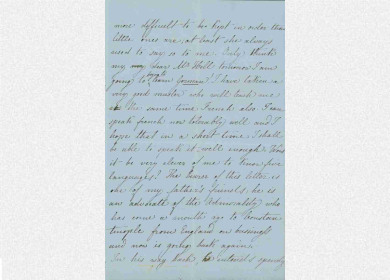 more difficult to be kept in order than
little ones are, at least she always
used to say so to me. Only think
my dear Mr Well tomorrow I am
going to learn German! I have taken a
very good master who will teach me
in the same time French also I can
speak french now tolerably well and I
hope that in a short time I shall
be able to speak it well enough. Won't
it be very clever of me to know five
languages? The bearer of this letter is
one of my father's friends he is
an advocate of the Admiralty who
has come a month ago to Constan
tinople from England on business
and now is going back again
In his way back, he intends